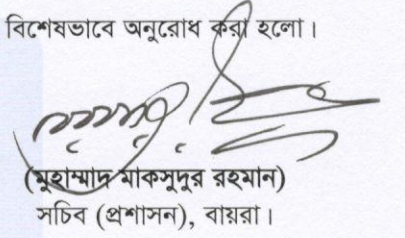 বিশেষভাবে অনুরোধ করা হলো।
(মুহাম্মাদ মাকসুদুর রহমান)
সচিব (প্রশাসন), বায়রা।